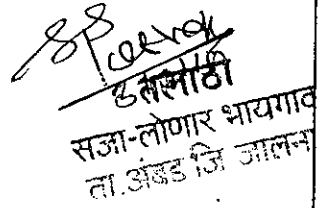 तलाठी
सजा-लोणार भायगाव
ता.अंबड जि जालना